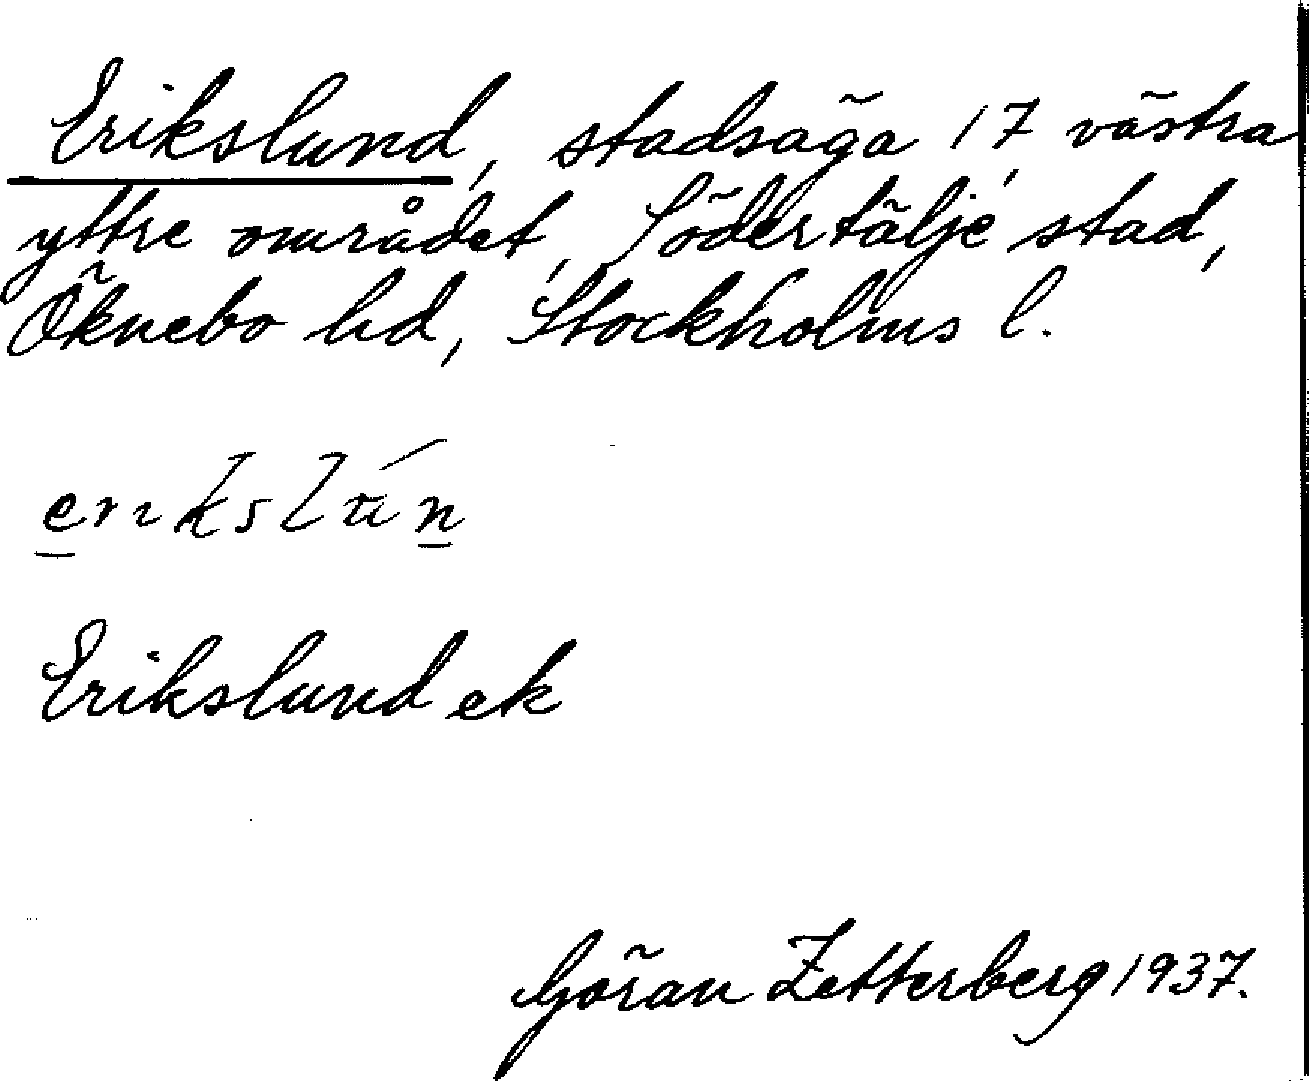 Erikslund, stadsäga 17, västra
yttre området, Södertälje stad,
Öknebo hd, Stockholms l.
erıkslún
Erikslund ek
Göran Zetterberg 1937.